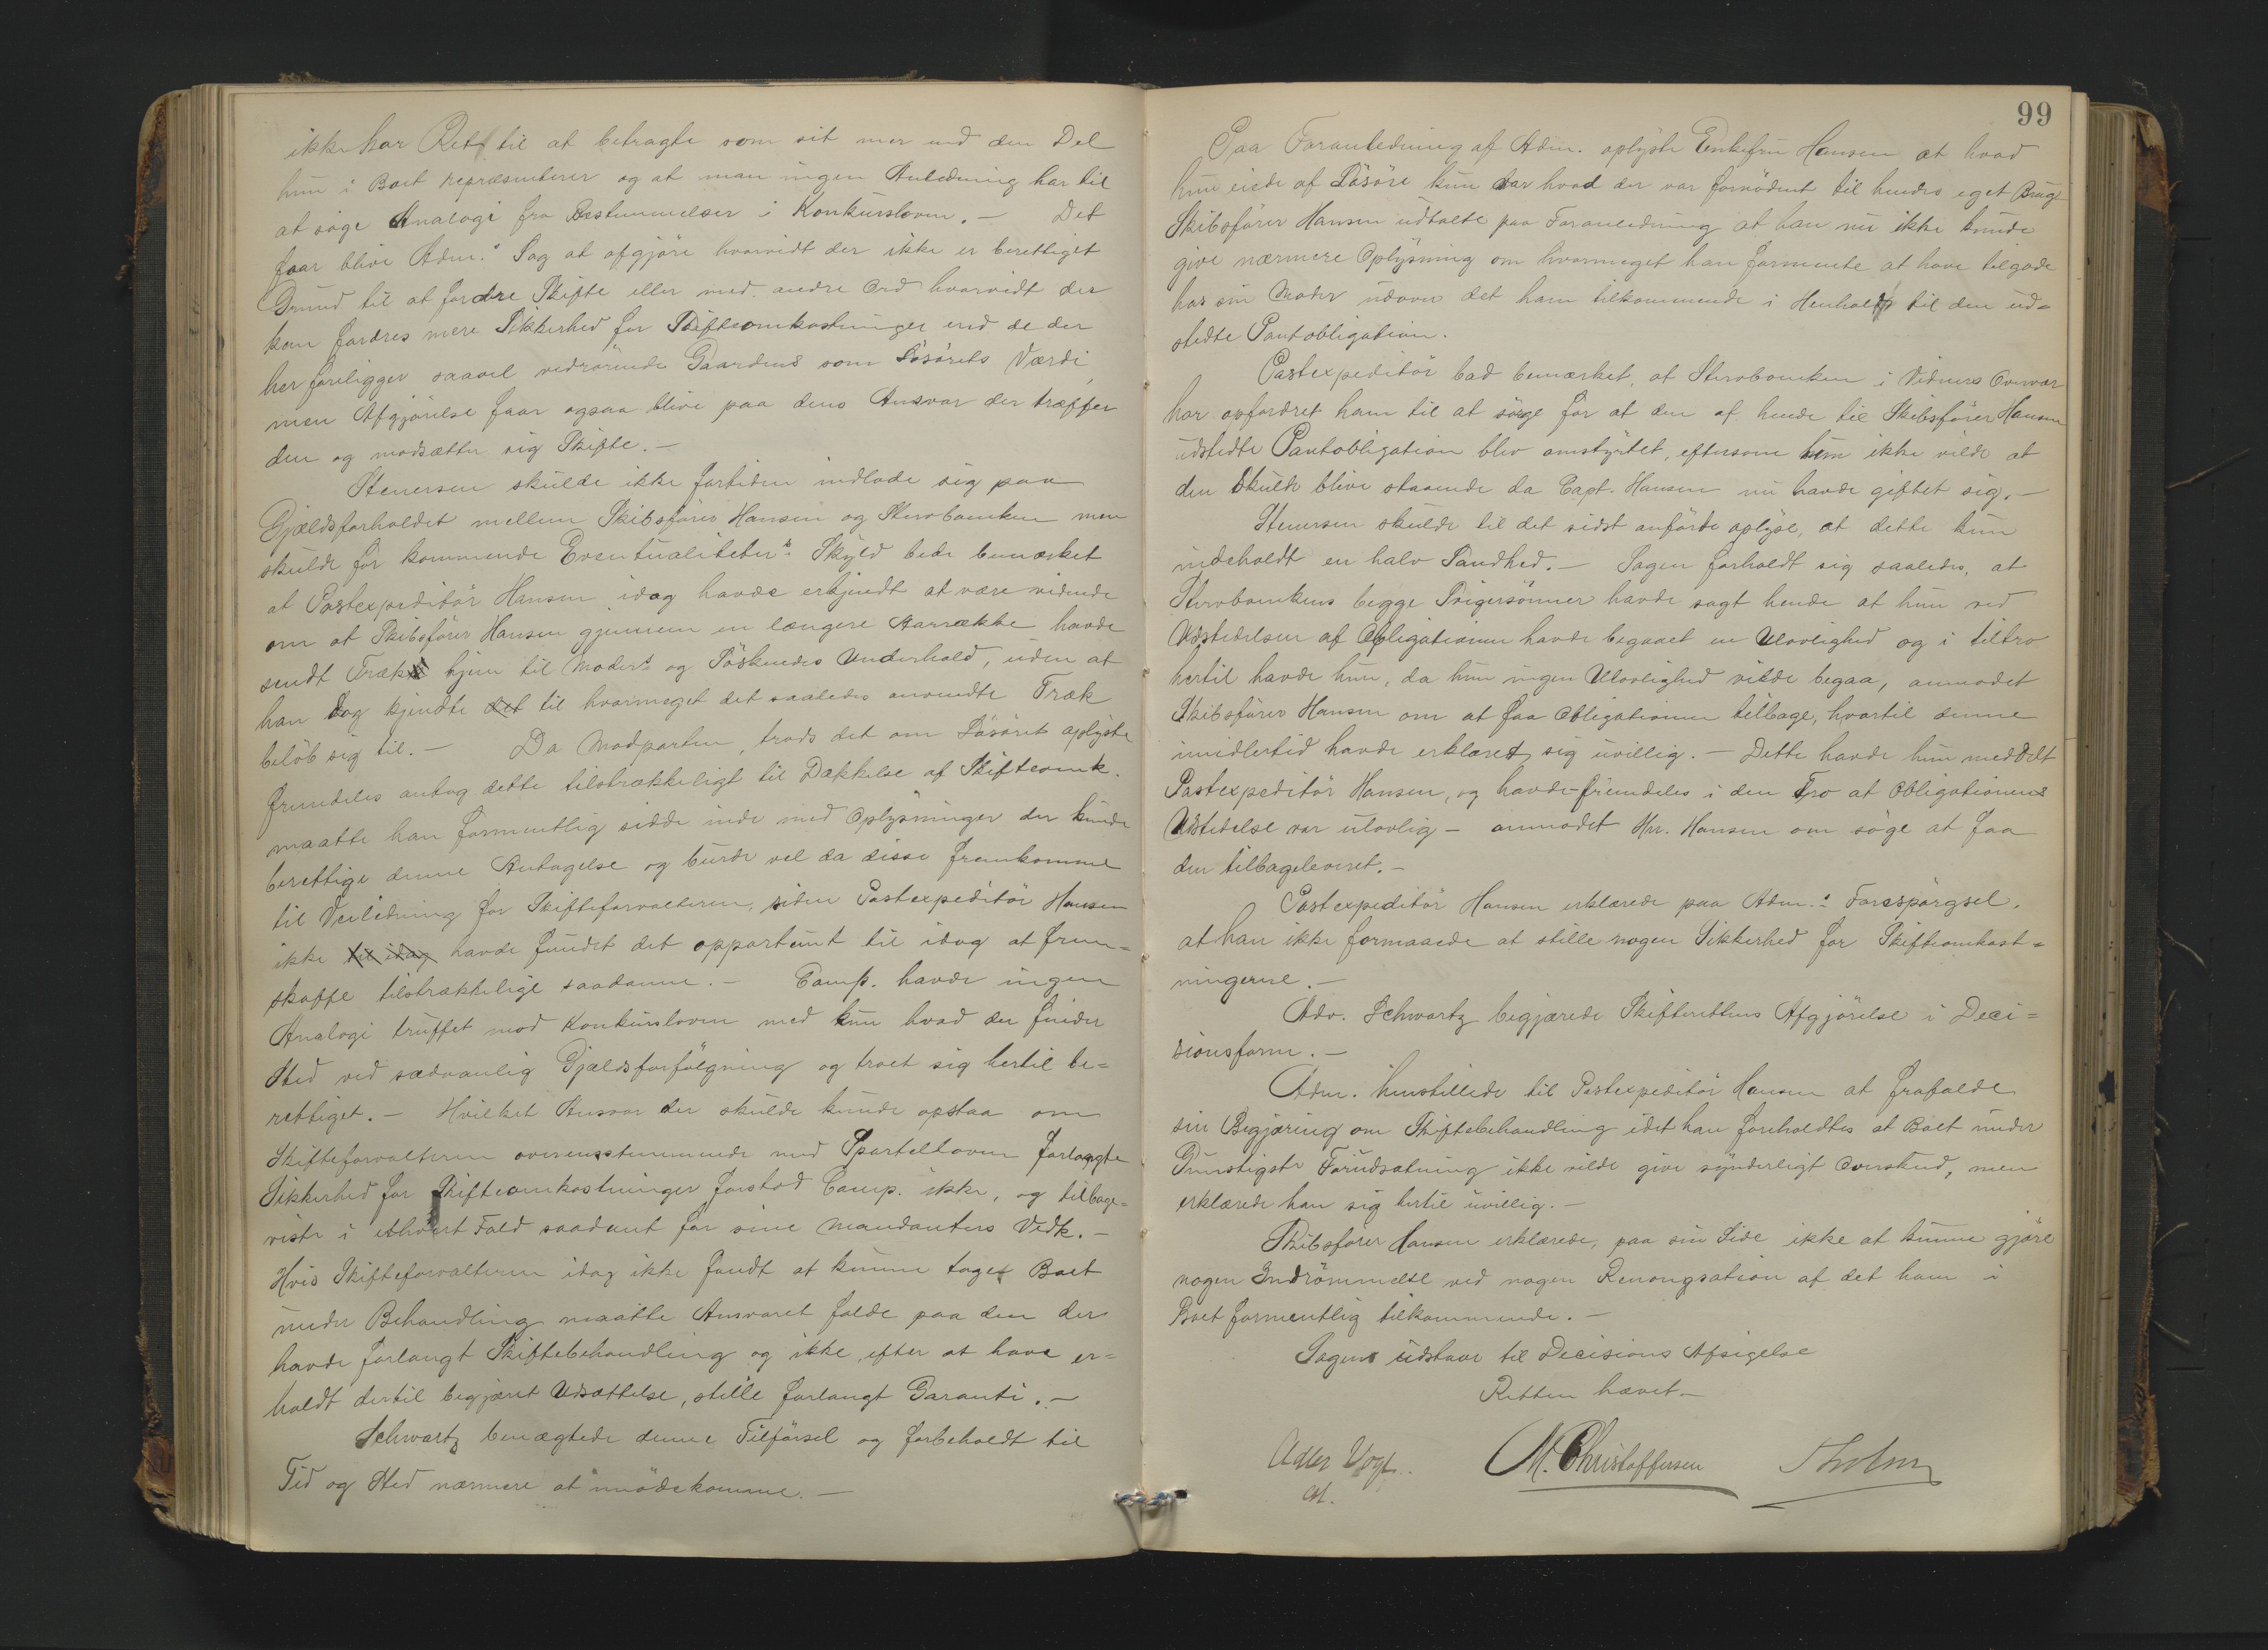 ikke har Ret til at betragte som sit mer end den Del
hun i Boet repræsenterer og at man ingen Anledning har til
at söge Analogi fra Bestemmelser i Konkursloven. — Det
faar blive Adm.s Sag at afgjöre hvorvidt der ikke er berettiget
Grund til at fordre Skifte eller med andre Ord hvorvidt der
kan fordres mere Sikkerhed for Skifteomkostninger end de der
her foreligger saavel vedrörende Gaardens som Lösörets Værdi,
men Afgjörelse faar ogsaa blive paa dens Ansvar der træffer
den og modsætter sig Skifte. —
Stenersen skulde ikke fortiden indlade sig paa
Gjældsforholdet mellem Skibsförer Hansen og Stervboenken men
skulde for kommende Eventualiteters Skyld bede bemærket
at Postexpeditör Hansen idag havde erkjendt at være vidende
om at Skibsförer Hansen gjennem en længere Aarrække havde
sendt Træk hjem til Moders og Söskendes Underhold, uden at
han dog kjendte det til hvormeget det saaledes anvendte Træk
belöb sig til. — Da Modparten, trods det om Lösöret oplyste
fremdeles antog dette tilstrækkeligt til Dækkelse af Skifteomk.
maatte han formentlig sidde inde med Oplysninger der kunde
berettige denne Antagelse og burde vel da disse fremkomme
til Veiledning for Skifteforvalteren, siden Postexpeditör Hansen
ikke til idag havde fundet det opportunt til idag at frem=
skaffe tilstrækkelige saadanne. — Comp. havde ingen
Analogi truffet med Konkursloven med kun hvad der finder
Sted ved sædvanlig Gjældsforfölgning og troet sig hertil be=
rettiget. — Hvilket Ansvar der skulde kunde opstaa om
Skifteforvalteren overensstemmende med Sportelloven forlangte
Sikkerhed for Skifteomkostninger forstod Comp. ikke, og tilbage=
viste i ethvert Fald saadant for sine Mandanters Vedk. —
Hvis Skifteforvalteren idag ikke fandt at kunne tage Boet
under Behandling maatte Ansvaret falde paa den der
havde forlangt Skiftebehandling og ikke, efter at have er=
holdt dertil begjæret Udsættelse, stille forlangt Garanti. —
Schwartz benægtede denne Tilförsel og forbeholdt til
Tid og Sted nærmere at imödekomme. —
99
Paa Foranledning af Adm. oplyste Enkefru Hansen at hvad
hun eiede af Lösöre kun var hvad der var fornödent til hendes eget Brug
Skibsförer Hansen udtalte paa Foranledning at han nu ikke kunde
give nærmere Oplysning om hvormeget han formente at have tilgode
hos sin Moder udover det ham tilkommende i Henhold til den ud=
stedte Pantobligation.
Postexpeditör bad bemærket, at Stervboenken i Vidners Overvær
har opfordret ham til at sörge for at den af hende til Skibsförer Hansen
udstedte Pantobligation blev omstyrtet, eftersom hun ikke vilde at
den skulde blive staaende da Capt. Hansen nu havde giftet sig. —
Stenersen skulde til det sidst anförte oplyse, at dette kun
indeholdt en halv Sandhed. — Sagen forholdt sig saaledes, at
Stervboenkens begge Svigersönner havde sagt hende at hun ved
Udstedelsen af Obligationen havde begaaet en Ulovlighed og i tiltro
hertil havde hun, da hun ingen Ulovlighed vilde begaa, anmodet
Skibsförer Hansen om at faa Obligationen tilbage, hvortil denne
imidlertid havde erklæret sig uvillig. — Dette havde hun meddelt
Postexpeditör Hansen, og havde – fremdeles i den Tro at Obligationens
Udstedelse var ulovlig — anmodet Hr. Hansen om söge at faa
den tilbageleveret. —
Postexpeditör Hansen erklærede paa Adm.s Forespörgsel,
at han ikke formaaede at stille nogen Sikkerhed for Skifteomkost=
ningerne. —
Adv. Schwartz begjærede Skifterettens Afgjörelse i Deci=
sionsform. —
Adm. henstillede til Postexpeditör Hansen at frafalde
sin Begjæring om Skiftebehandling idet han foreholdtes at Boet under
Gunstigste Forudsætning ikke vilde give synderligt Overskud, men
erklærede han sig hertil uvillig. —
Skibsförer Hansen erklærede, paa sin Side ikke at kunne gjöre
nogen Indrömmelse ved nogen Renongsation af det ham i
Boet formentlig tilkommende. —
Sagen udstaar til Decisions Afsigelse
Retten hævet —
Adler Vogt M. Christoffersen S Holm
cst.